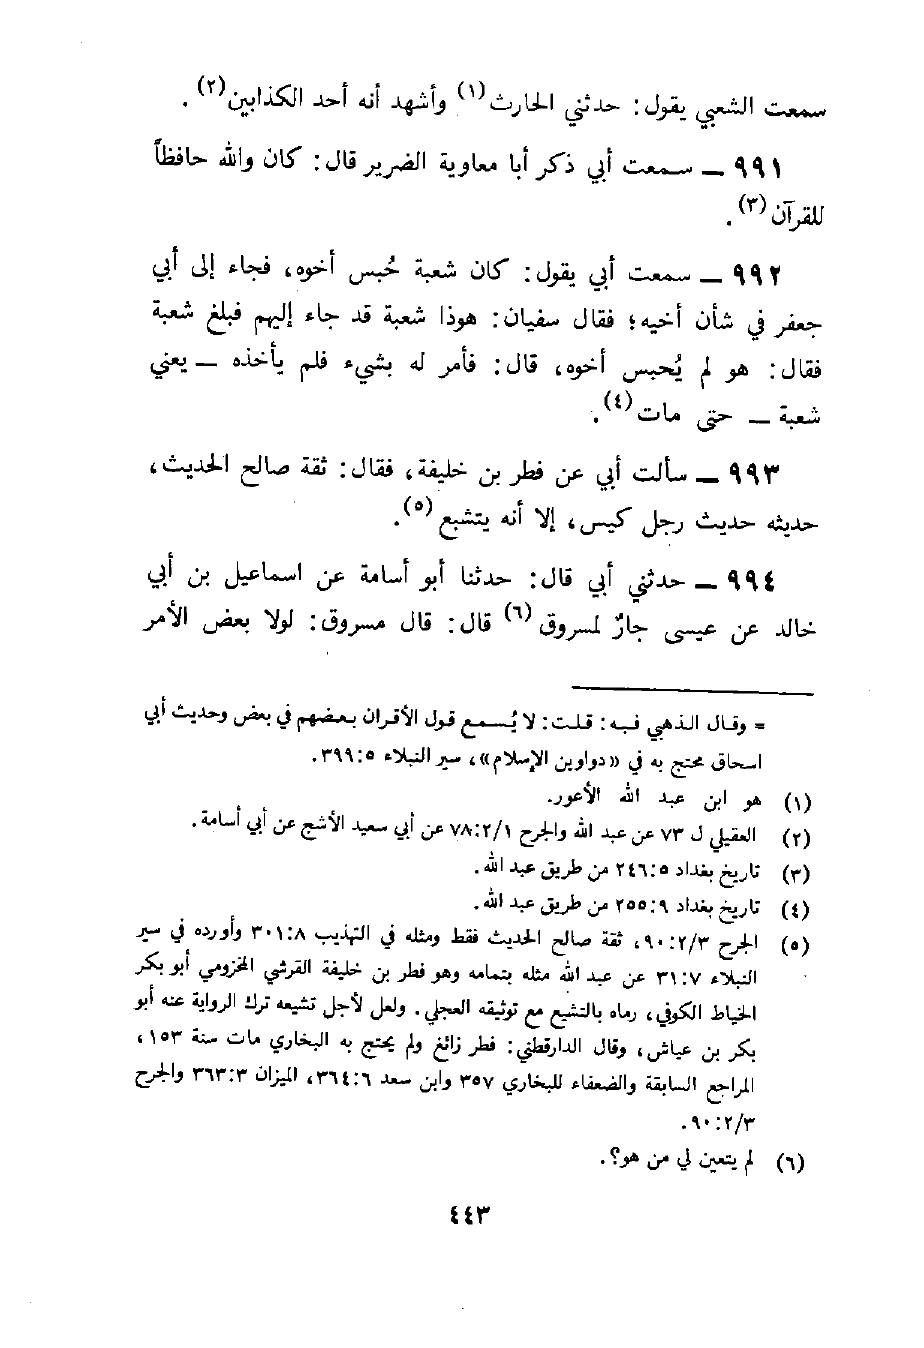 سمعت الشعبي يقول: حدثني الحارث(١) وأشهد أنه أحد الكذابين(٢).
٩٩١ ــ سمعت أبي ذكر أبا معاوية الضرير قال: كان والله حافظاً
للقرآن(٣).
٩٩٢ ــ سمعت أبي يقول: كان شعبة حُبس أخوه، فجاء إلى أبي
جعفر في شأن أخيه؛ فقال سفيان: هوذا شعبة قد جاء إليهم فبلغ شعبة
فقال: هو لم يُحبس أخوه، قال: فأمر له بشيء فلم يأخذه ــ يعني
شعبة ــ حتى مات(٤).
٩٩٣ ــ سألت أبي عن فطر بن خليفة، فقال: ثقة صالح الحديث،
حديثه حديث رجل كيس، إلا أنه يتشيع(٥).
٩٩٤ ــ حدثني أبي قال: حدثنا أبو أسامة عن اسماعيل بن أبي
خالد عن عيسى جارٌ لمسروق(٦) قال: قال مسروق: لولا بعض الأمر
= وقال الذهبي فيه: قلت: لا يُسمع قول الأقران بعضهم في بعض وحديث أبي
اسحاق محتج به في «دواوين الإسلام»، سير النبلاء ٥:٣٩٩.
(١) هو ابن عبد الله الأعور.
(٢) العقيلي ل ٧٣ عن عبد الله والجرح ٧٨:٢/١ عن أبي سعيد الأشج عن أبي أسامة.
(٣) تاريخ بغداد ٢٤٦:٥ من طريق عبد الله.
(٤) تاريخ بغداد ٢٥٥:٩ من طريق عبد الله.
(٥) الجرح ٩٠:٢/٣، ثقة صالح الحديث فقط ومثله في التهذيب ٣٠١:٨ وأورده في سير
النبلاء ٣١:٧ عن عبد الله مثله بتمامه وهو فطر بن خليفة القرشي المخزومي أبو بكر
الخياط الكوفي، رماه بالتشيع مع توثيقه العجلي. ولعل لأجل تشيعه ترك الرواية عنه أبو
بكر بن عياش، وقال الدارقطني: فطر زائغ ولم يحتج به البخاري مات سنة ١٥٣،
المراجع السابقة والضعفاء للبخاري ٣٥٧ وابن سعد ٣٦٤:٦، الميزان ٣٦٣:٣ والجرح
٩٠:٢/٣.
(٦) لم يتعين لي من هو؟.
٤٤٣